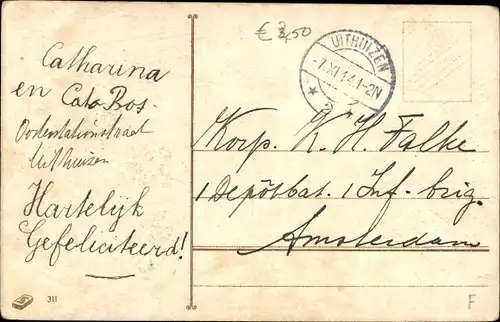 Catharina
en Cato Bos.
Uithuizen
Hartelijk
Gefeliciteerd!
311
€ 3,50
UITHUIZEN
-7.XI.14.1-2N
* 2
Korp. K. H. Falke
1 Depôtbat. 1 Inf-brig.
Amsterdam
F